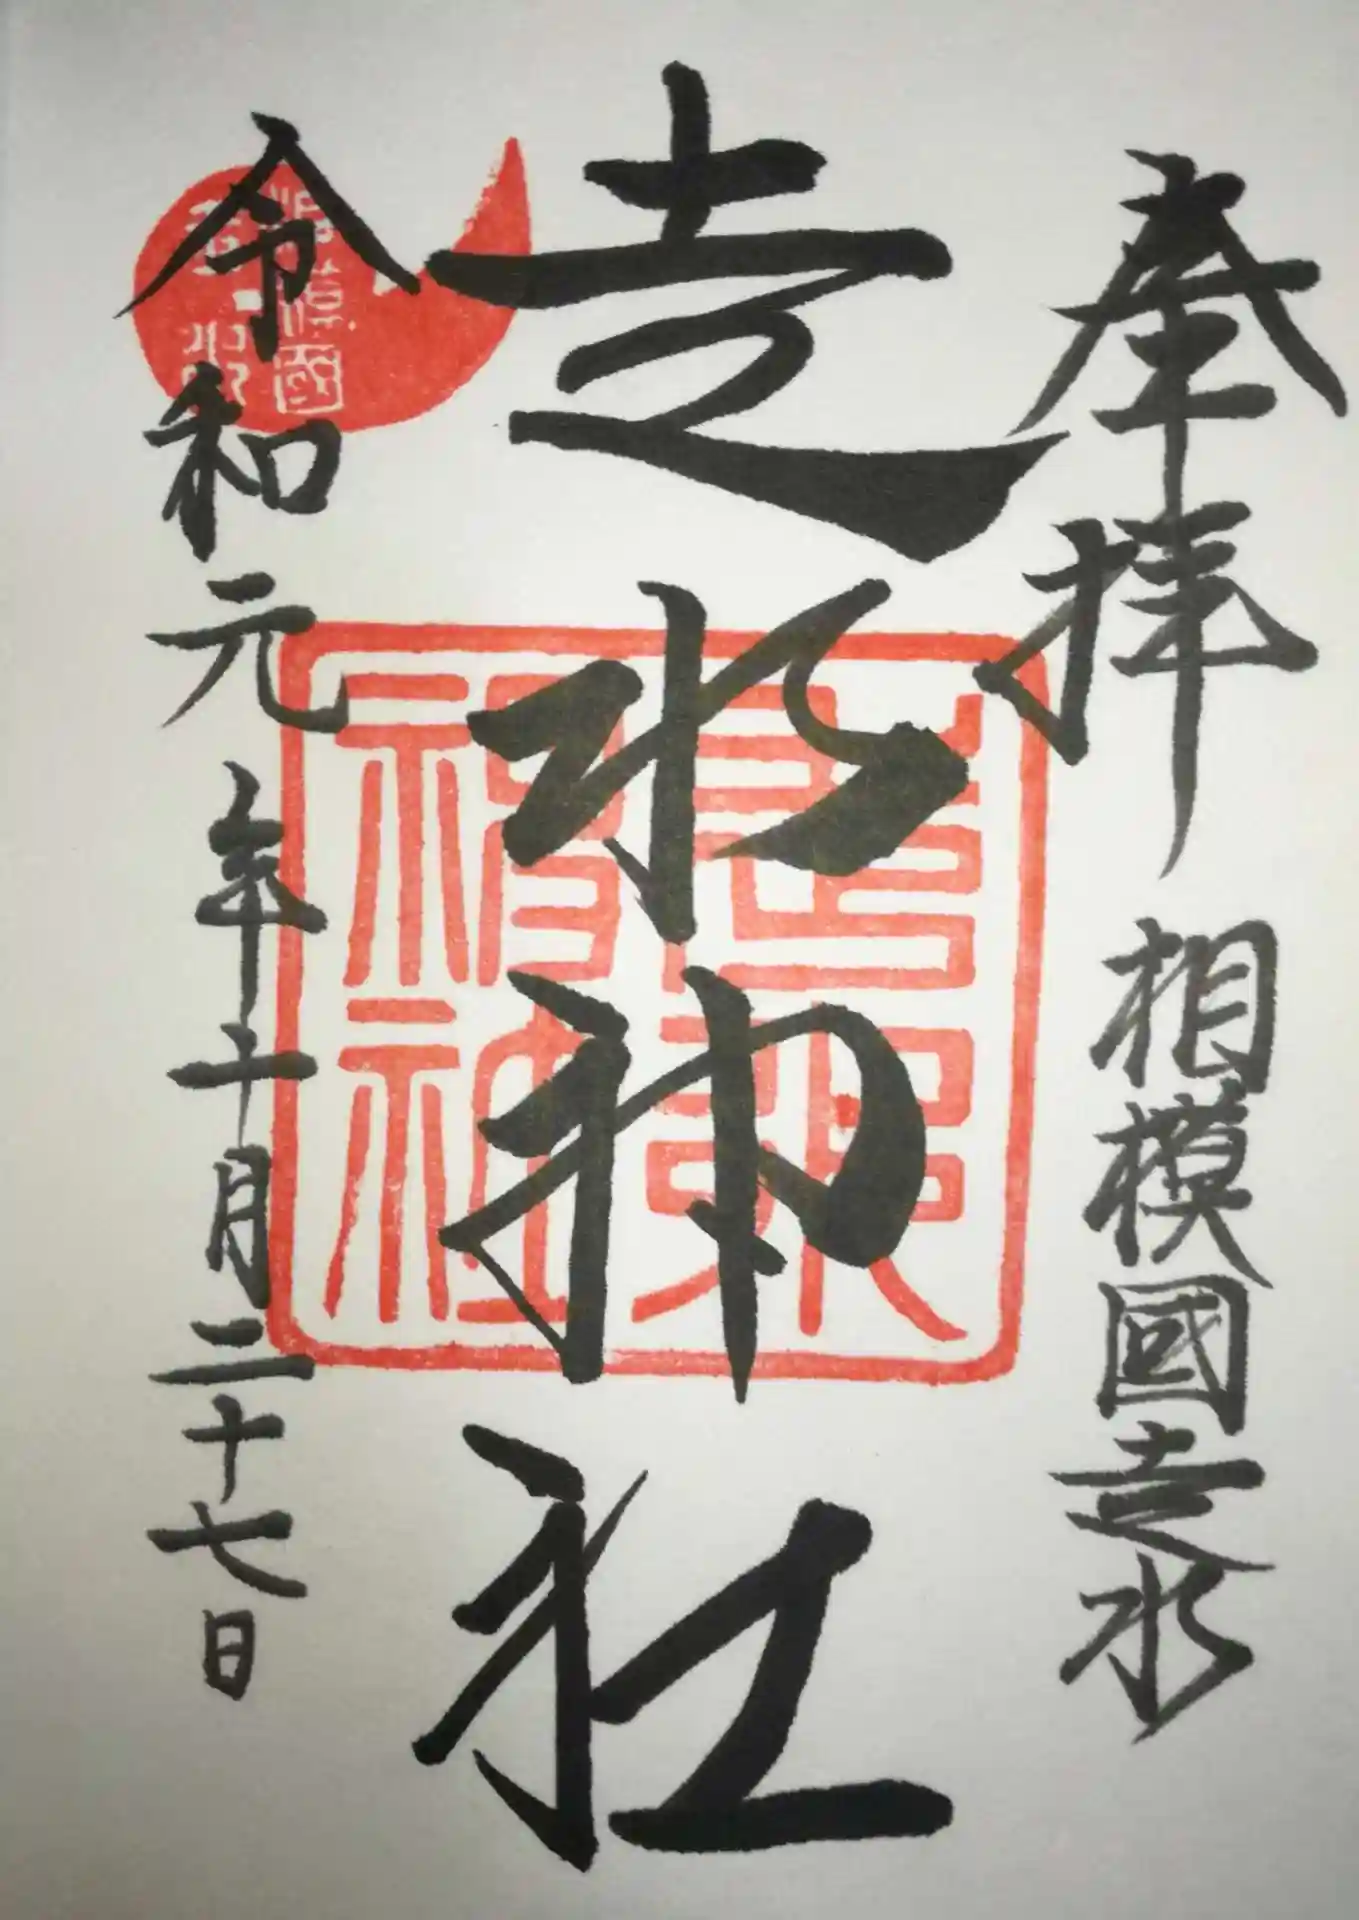 奉拝 相模國走水
走水神社
令和元年十月二十七日
相模國
走水